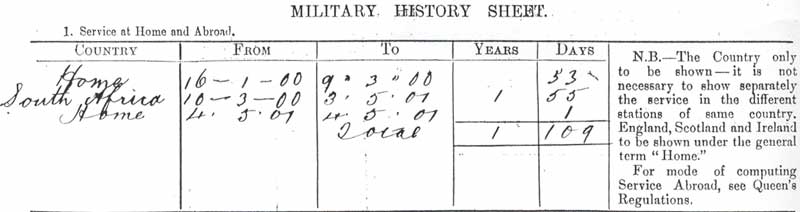 MILITARY HISTORY SHEET.
1. Service at Home and Abroad.
COUNTRY FROM TO YEARS DAYS
Home 16 – 1 – 00 9 " 3 " 00 53
South Africa 10 – 3 – 00 3 . 5 . 01 1 55
Home 4 . 5 . 01 4 . 5 . 01 1
Total 1 109
N.B.—The Country only
to be shown—it is not
necessary to show separately
the service in the different
stations of same country.
England, Scotland and Ireland
to be shown under the general
term "Home."
For mode of computing
Service Abroad, see Queen's
Regulations.